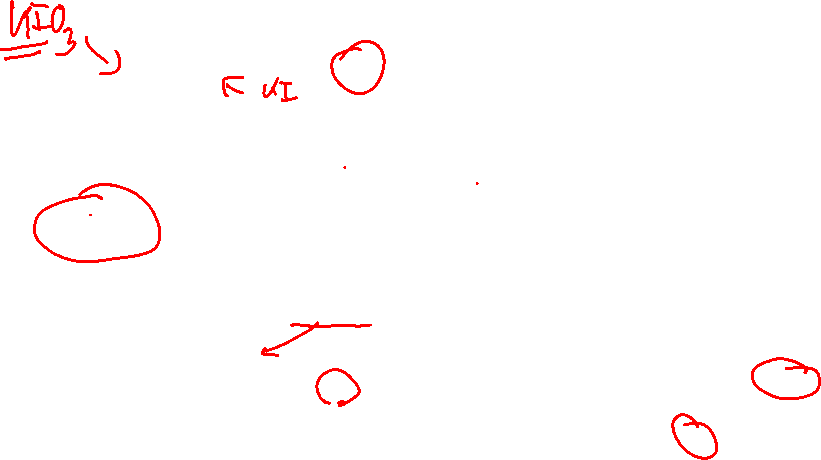 KIO₃
KI